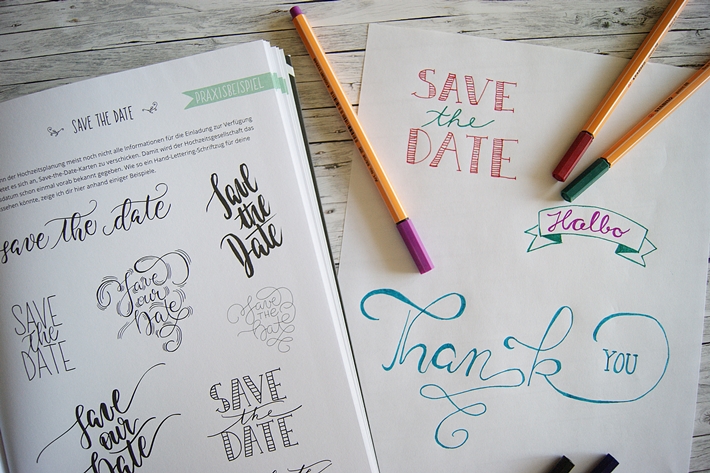 PRAXISBEISPIEL
SAVE THE DATE
der Hochzeitsplanung meist noch nicht alle Informationen für die Einladung zur Verfügung
es sich an, Save-the-Date-Karten zu verschicken. Damit wird der Hochzeitsgesellschaft das
schon einmal vorab bekannt gegeben. Wie so ein Hand-Lettering-Schriftzug für deine
aussehen könnte, zeige ich dir hier anhand einiger Beispiele.
save the date
Save
the
Date
Save
our
Date
SAVE
the
DATE
Save
THE
Date
Save
our
Date
SAVE
the
DATE
SAVE
the
DATE
Hallo
Thank YOU